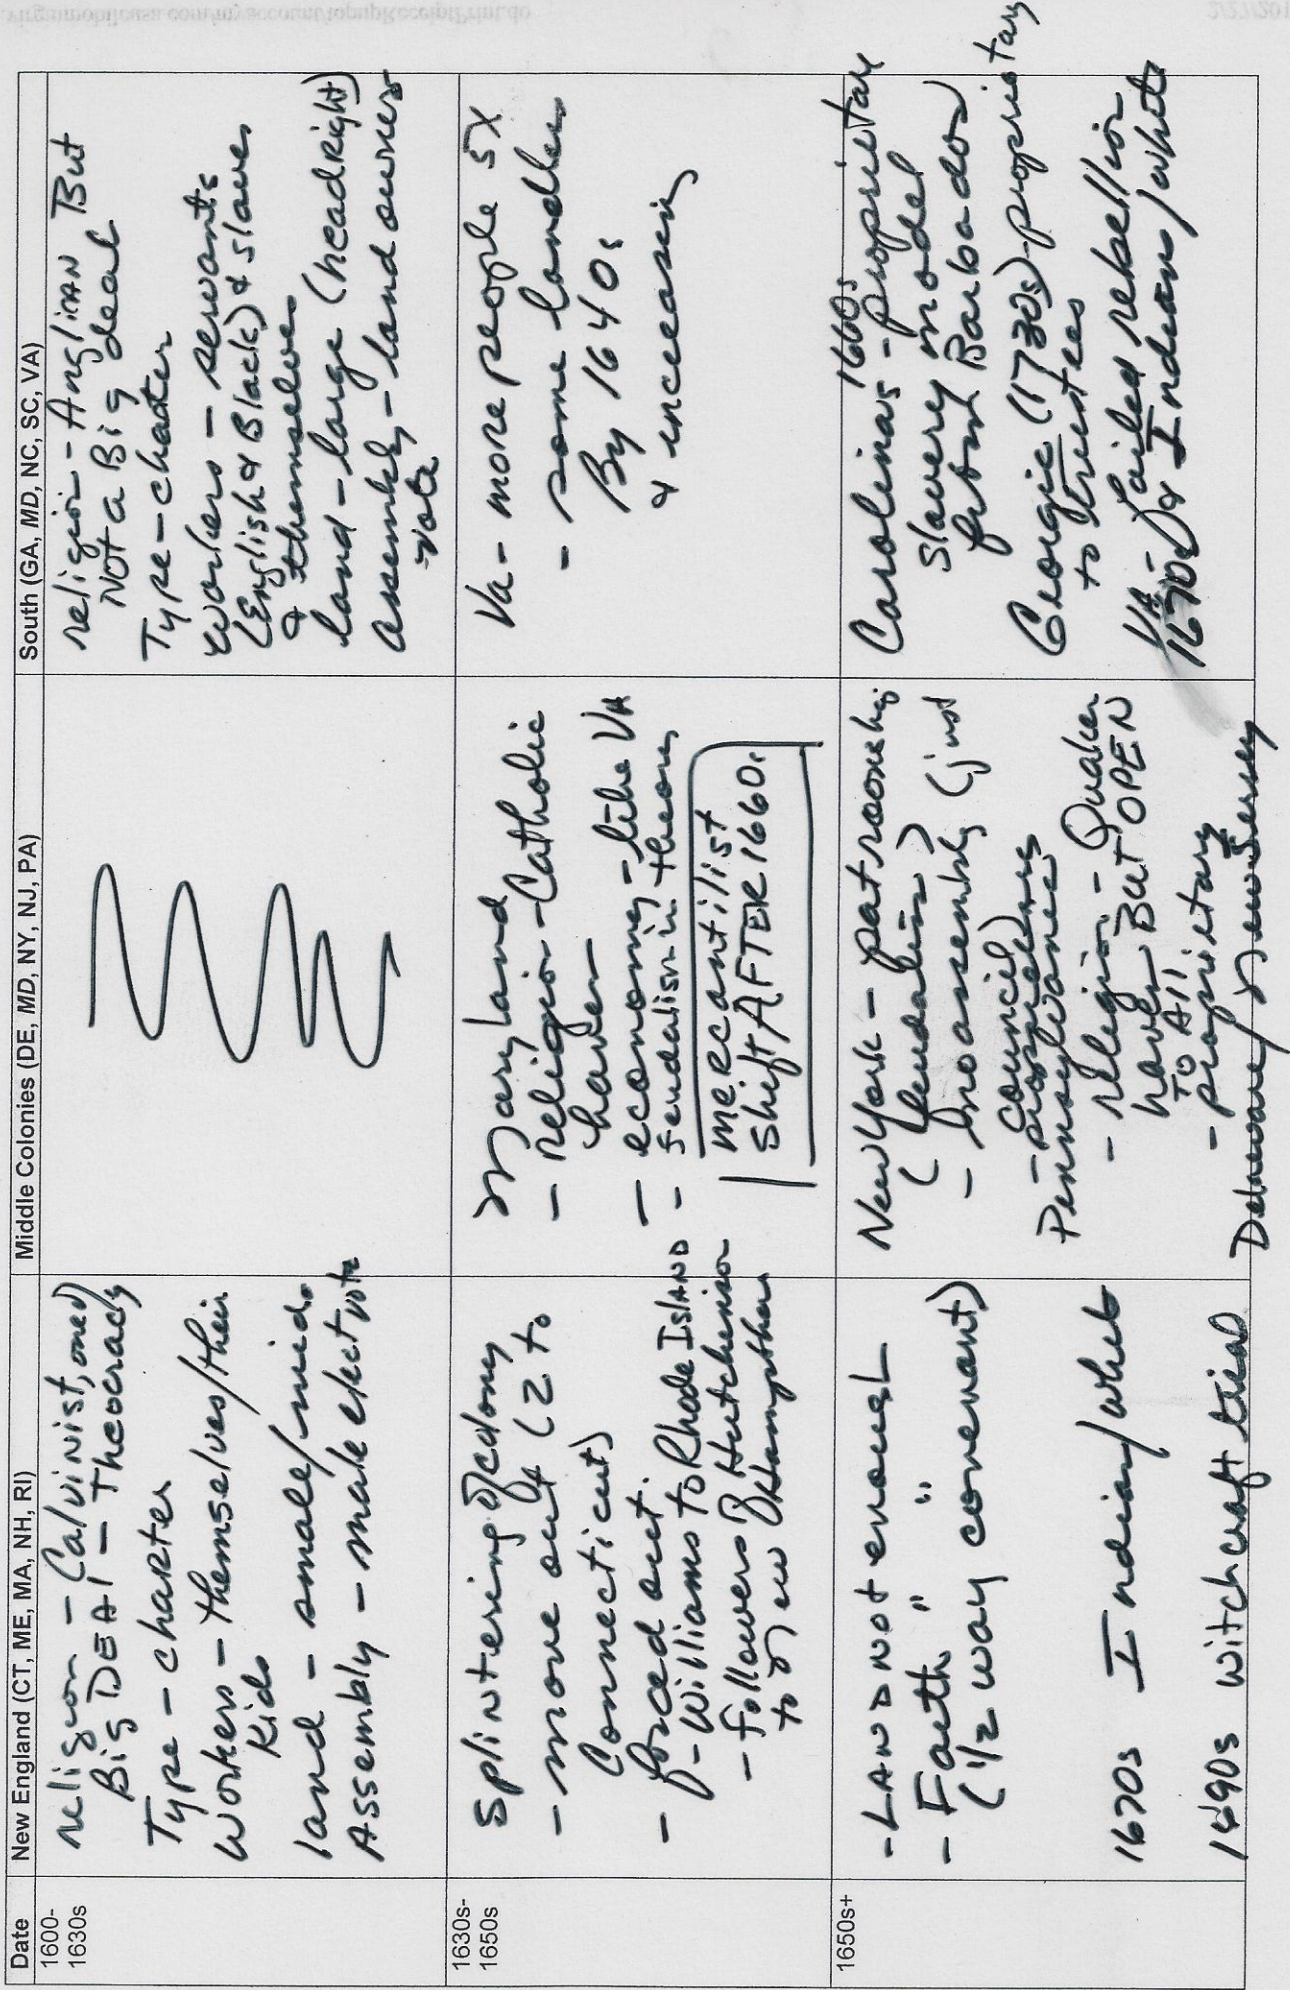 Date
New England (CT, ME, MA, NH, RI)
Middle Colonies (DE, MD, NY, NJ, PA)
South (GA, MD, NC, SC, VA)
1600-
1630s
religion - Calvinist, one)
Big DEAl - Theocracy
Type - charter
Workers - themselves/their
Kids
land - small/mid.
Assembly - male elect vote
religion - Anglican But
Not a Big deal
Type - charter
Workers - servants
(English & Black) & slaves
& themselves
land - large (headright)
assembly - land owners
vote
1630s-
1650s
Splintering of colony
- move out (2 to
Connecticut)
- forced out
- Williams to Rhode ISLAND
- followers of Hutchinson
to New Hampshire
Maryland
- religion - Catholic
haven
- economy - like VA
- feudalism in theory
mercantilist
shift AFTER 1660s
Va - more people 5X
- some landless
By 1640s
& increasing
1650s+
- LAND not enough
- Faith " "
(1/2 way covenant)
1670s Indian/white
1690s witchcraft trial
New York - patroonship
(feudalism)
- no assembly (just
council)
- proprietary
Pennsylvania
- religion - Quaker
haven BUT OPEN
TO All
- proprietary
Delaware/New Jersey
1660s
Carolinas - proprietary
slavery model
from Barbados
Georgia (1730s) - proprietary
to trustees
VA - failed rebellion
1670s & Indians/white